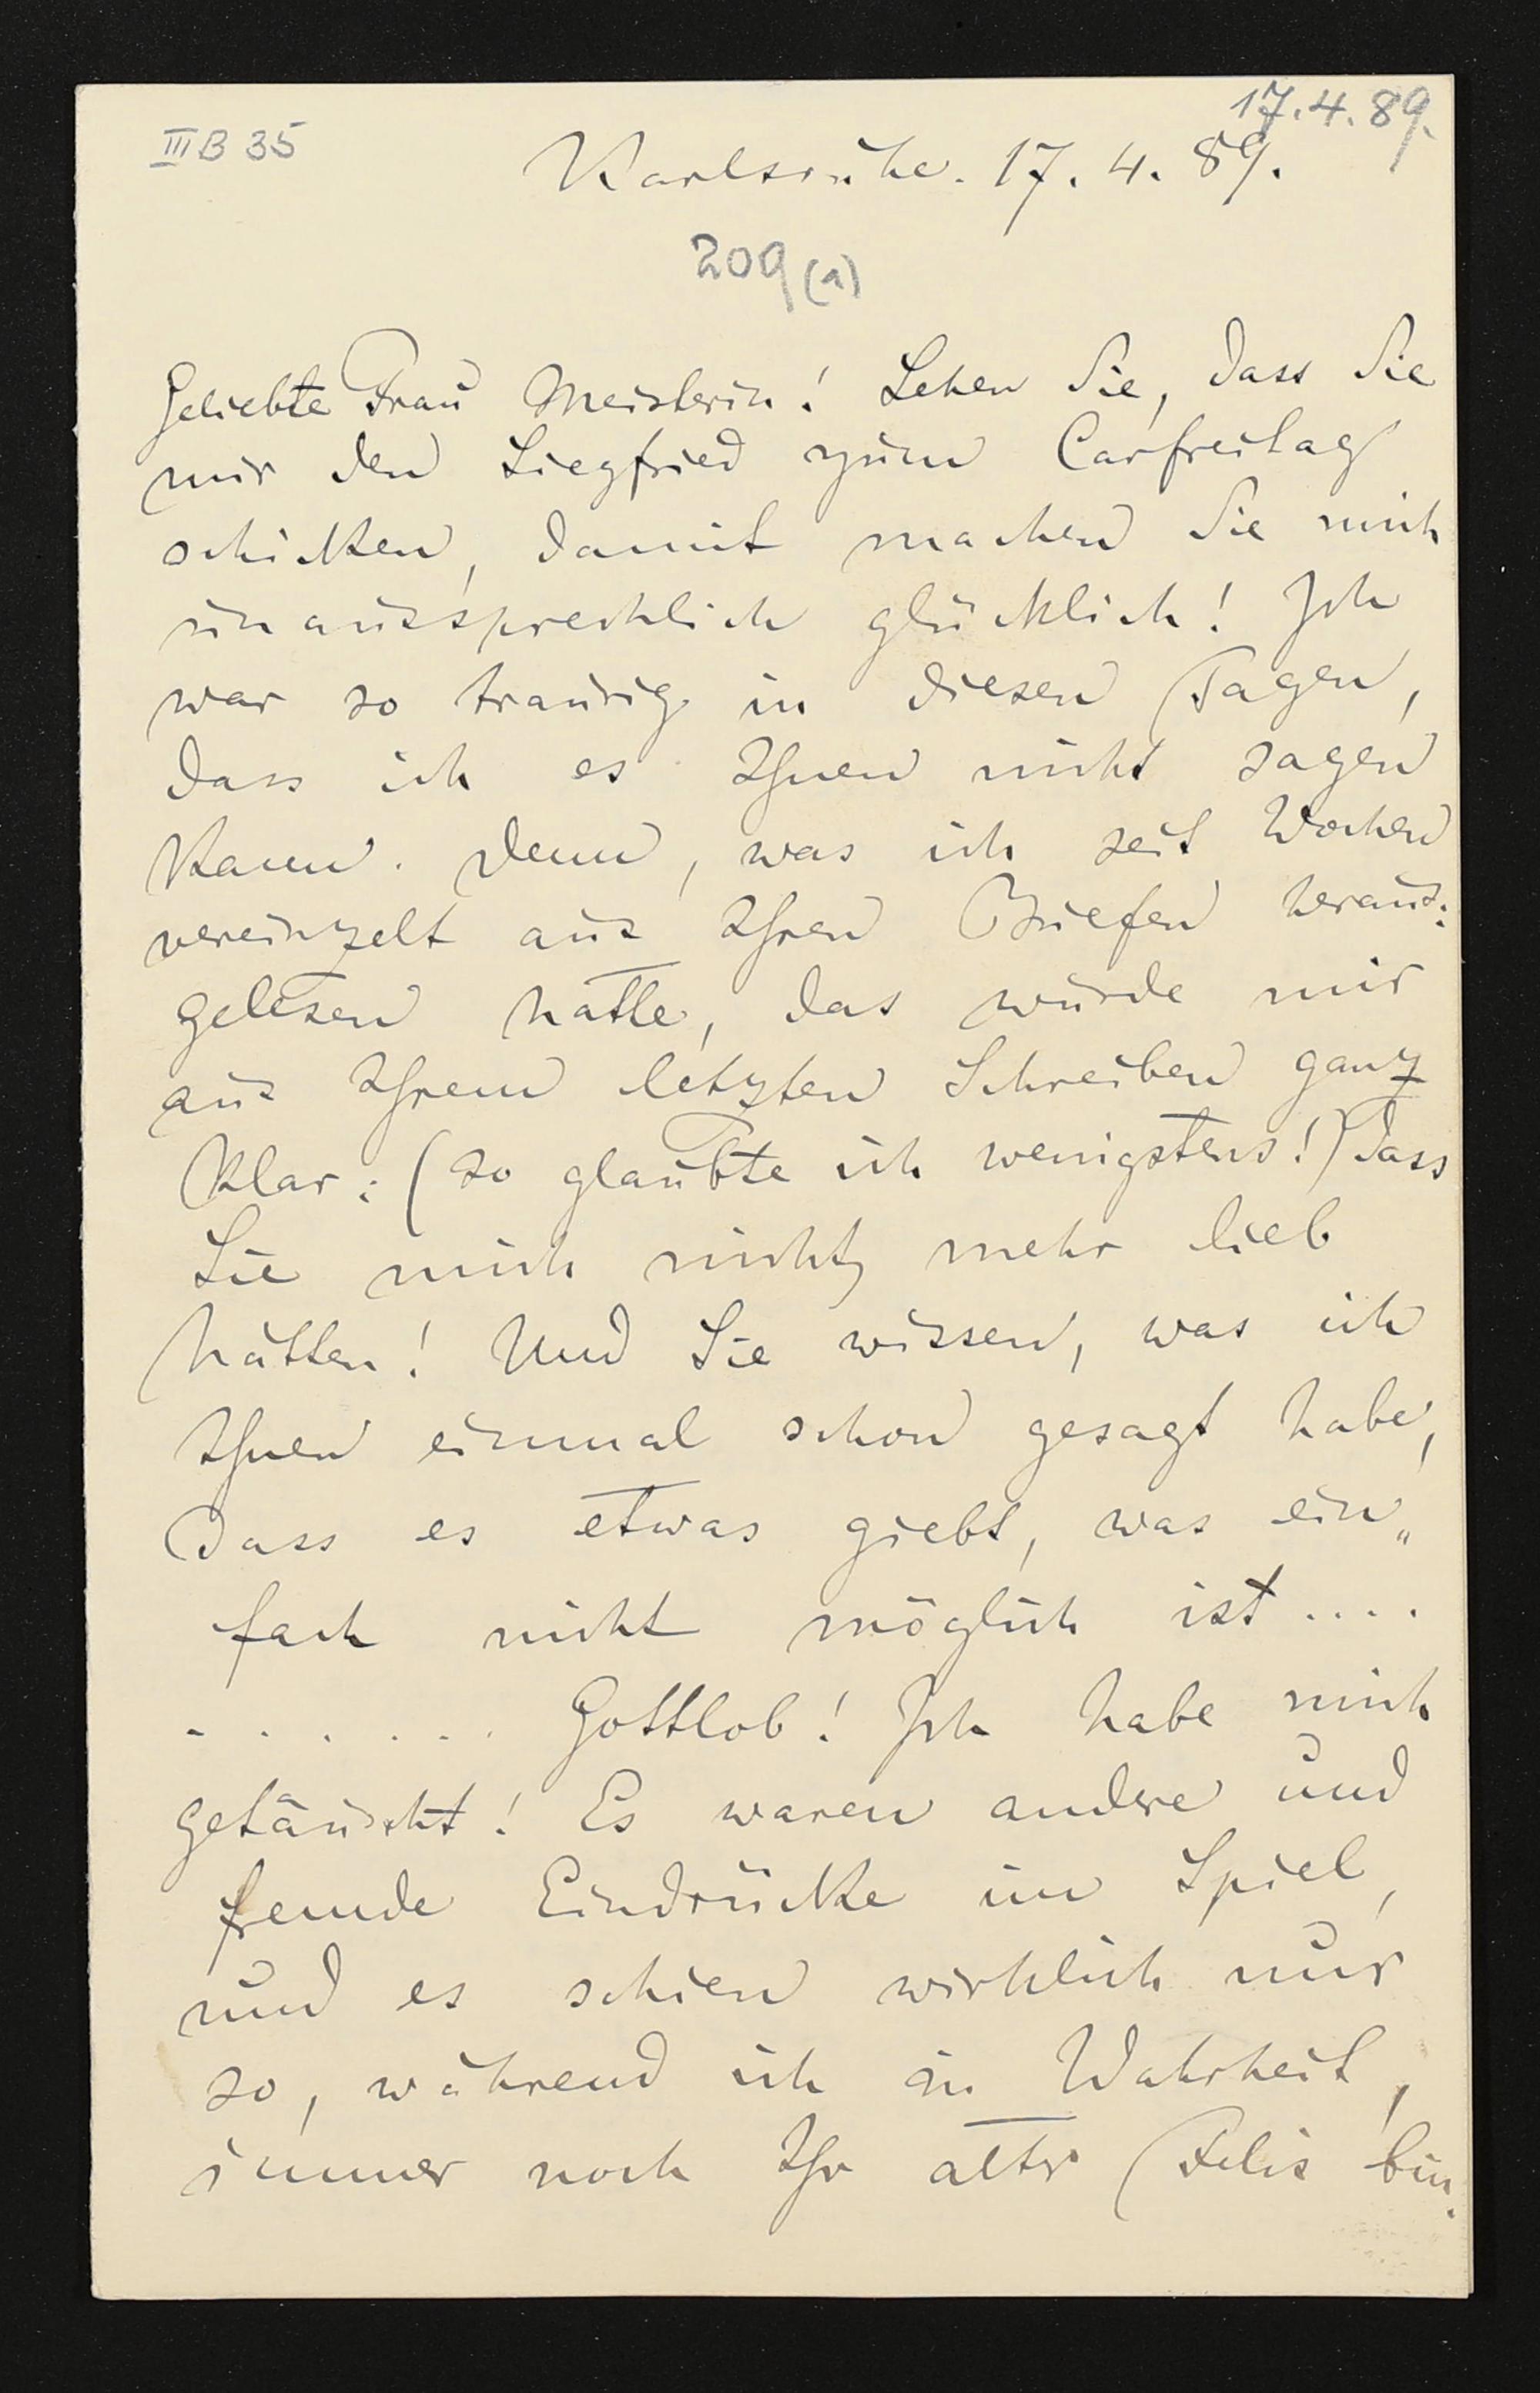 17.4.89.
III B 35
Karlsruhe. 17. 4. 89.
209 (a)
Geliebte Frau Meisterin! Sehen Sie, dass Sie
mir den Siegfried zum Carfreitag
schicken, damit machen Sie mich
unaussprechlich glücklich! Ich
war so traurig in diesen Tagen,
dass ich es Ihnen nicht sagen
kann. Denn, was ich seit Wochen
vereinzelt aus Ihren Briefen heraus:
gelesen hatte, das wurde mir
aus Ihrem letzten Schreiben ganz
klar: (so glaubte ich wenigstens!) dass
Sie mich nicht mehr lieb
hätten! Und Sie wissen, was ich
Ihnen einmal schon gesagt habe,
dass es etwas giebt, was ein„
fach nicht möglich ist....
. . . . . . Gottlob! Ich habe mich
getäuscht! Es waren andre und
fremde Eindrücke im Spiel,
und es schien wirklich nur
so, während ich in Wahrheit,
immer noch Ihr alter Felix bin.